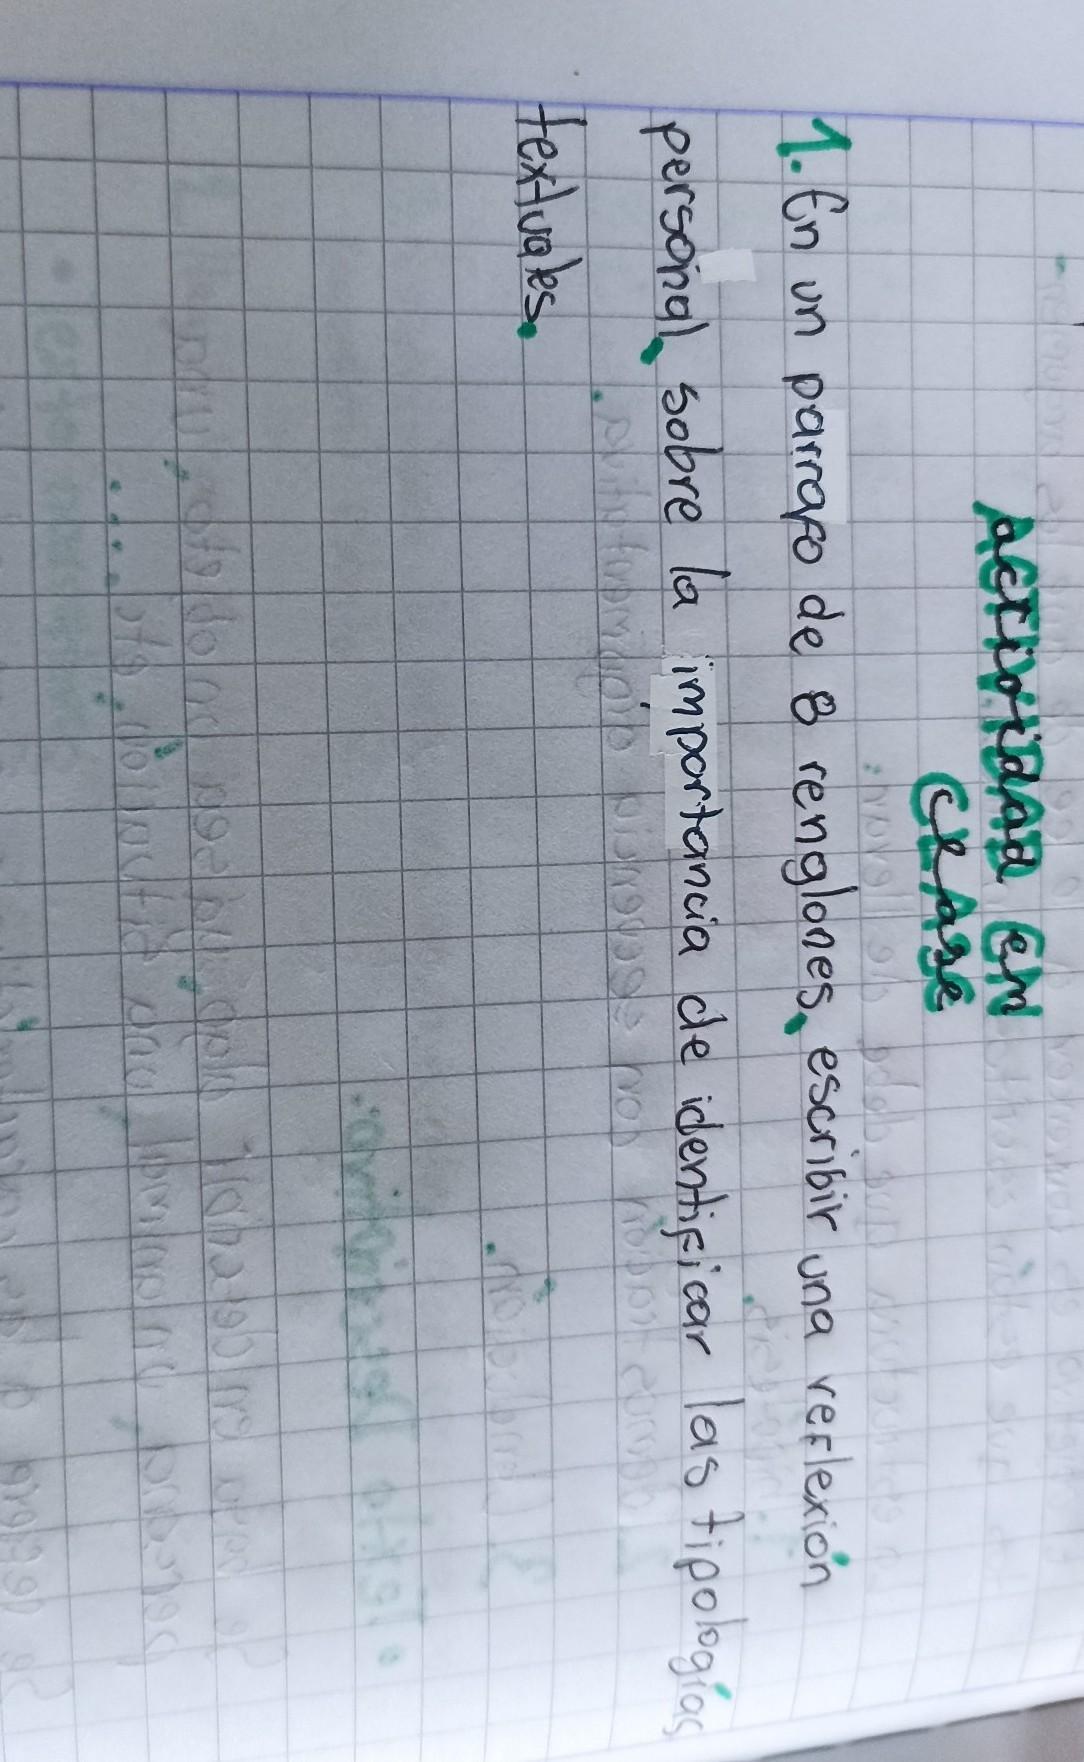 Actividad en
Clase
1. En un parrafo de 8 renglones, escribir una reflexión
personal, sobre la importancia de identificar las tipologías
textuales.